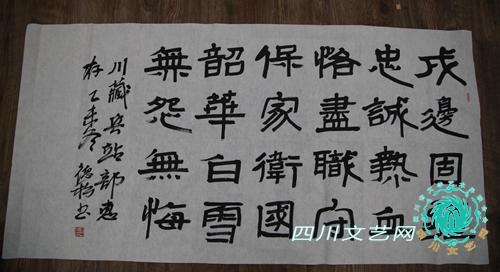 戍邊固疆
忠誠熱血
恪盡職守
保家衛國
韶華白雪
無怨無悔
川藏兵站部惠
存乙未冬 書
四川文艺网